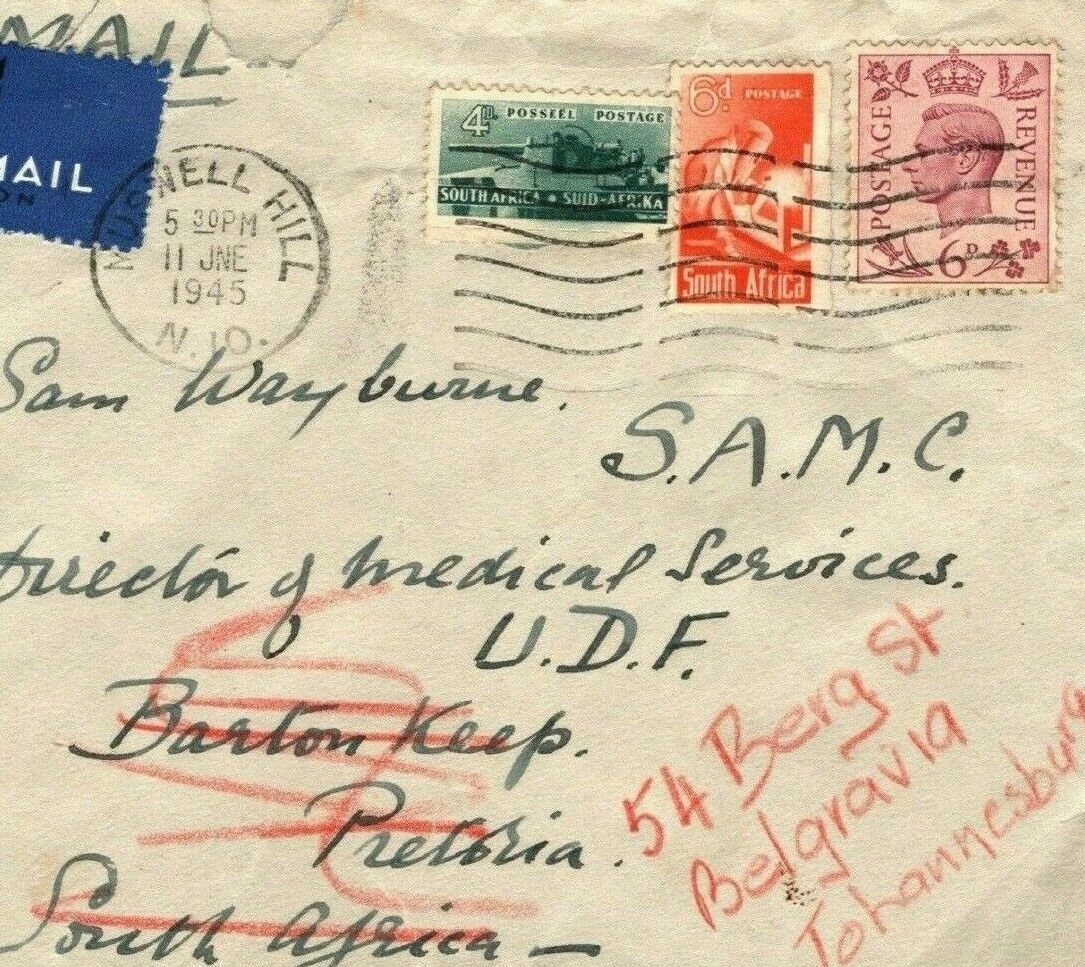 MAIL
MAIL
ON
MUSWELL HILL
5 30PM
11 JNE
1945
N.10.
4D. POSSEËL POSTAGE
SOUTH AFRICA • SUID-AFRIKA
6d. POSTAGE
South Africa
POSTAGE
REVENUE
6D
Sam Wayburne.
S.A.M.C.
Director of Medical Services.
U.D.F.
Barton Keep.
Pretoria.
South Africa —
54 Berg St.
Belgravia
Johannesburg